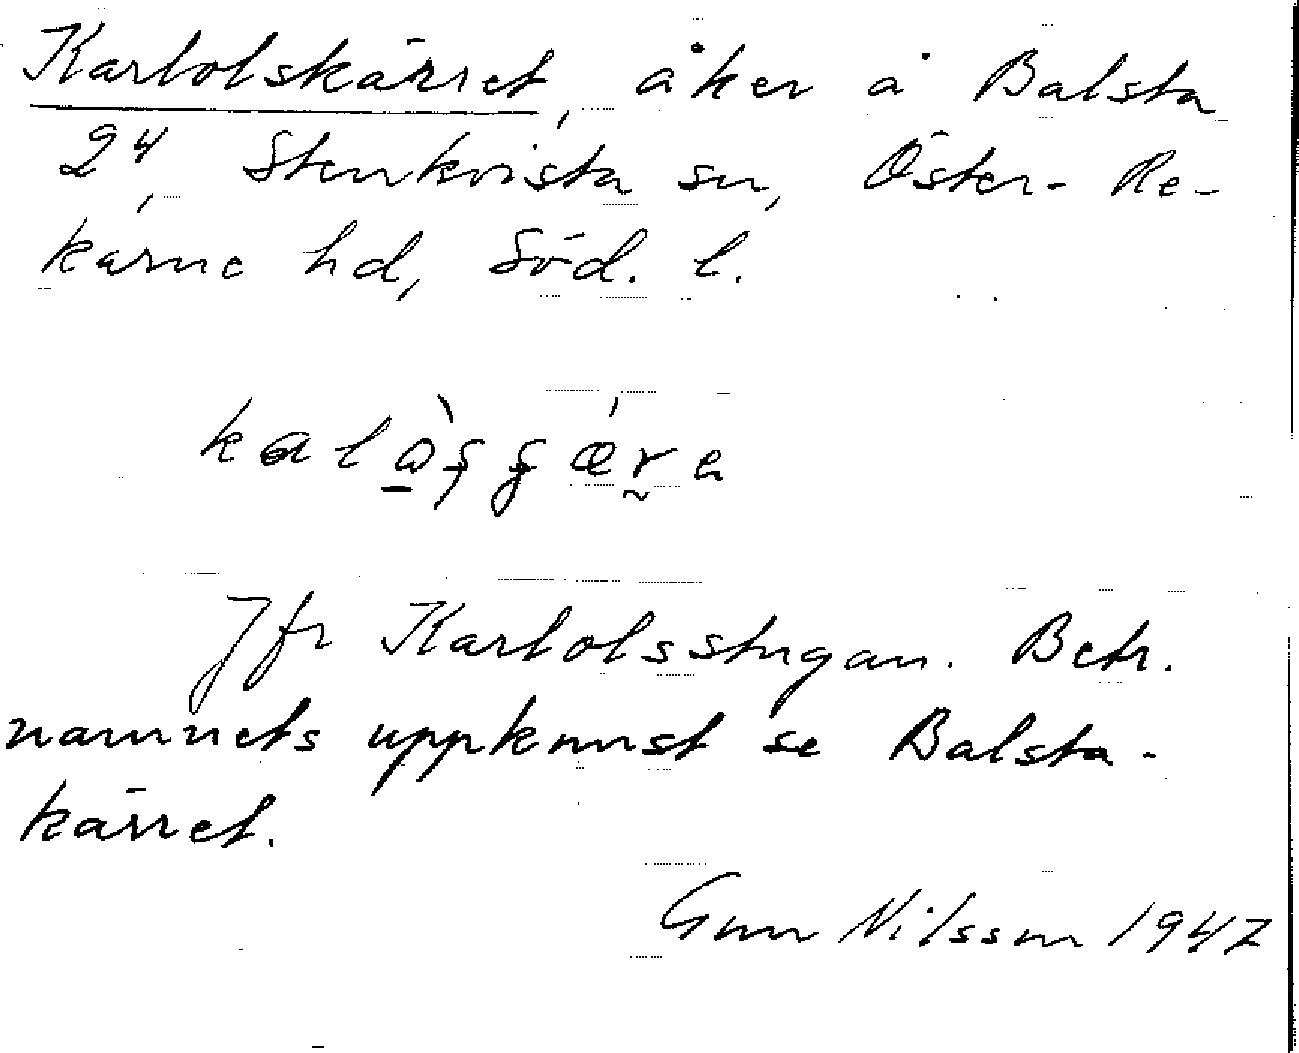 Karlolskärret, åker å Balsta
24, Stenkvista sn, Öster-Re-
karne hd, Söd. l.
Jfr Karlolsstugan. Betr.
namnets uppkomst se Balsta-
kärret.
Gun Nilsson 1947